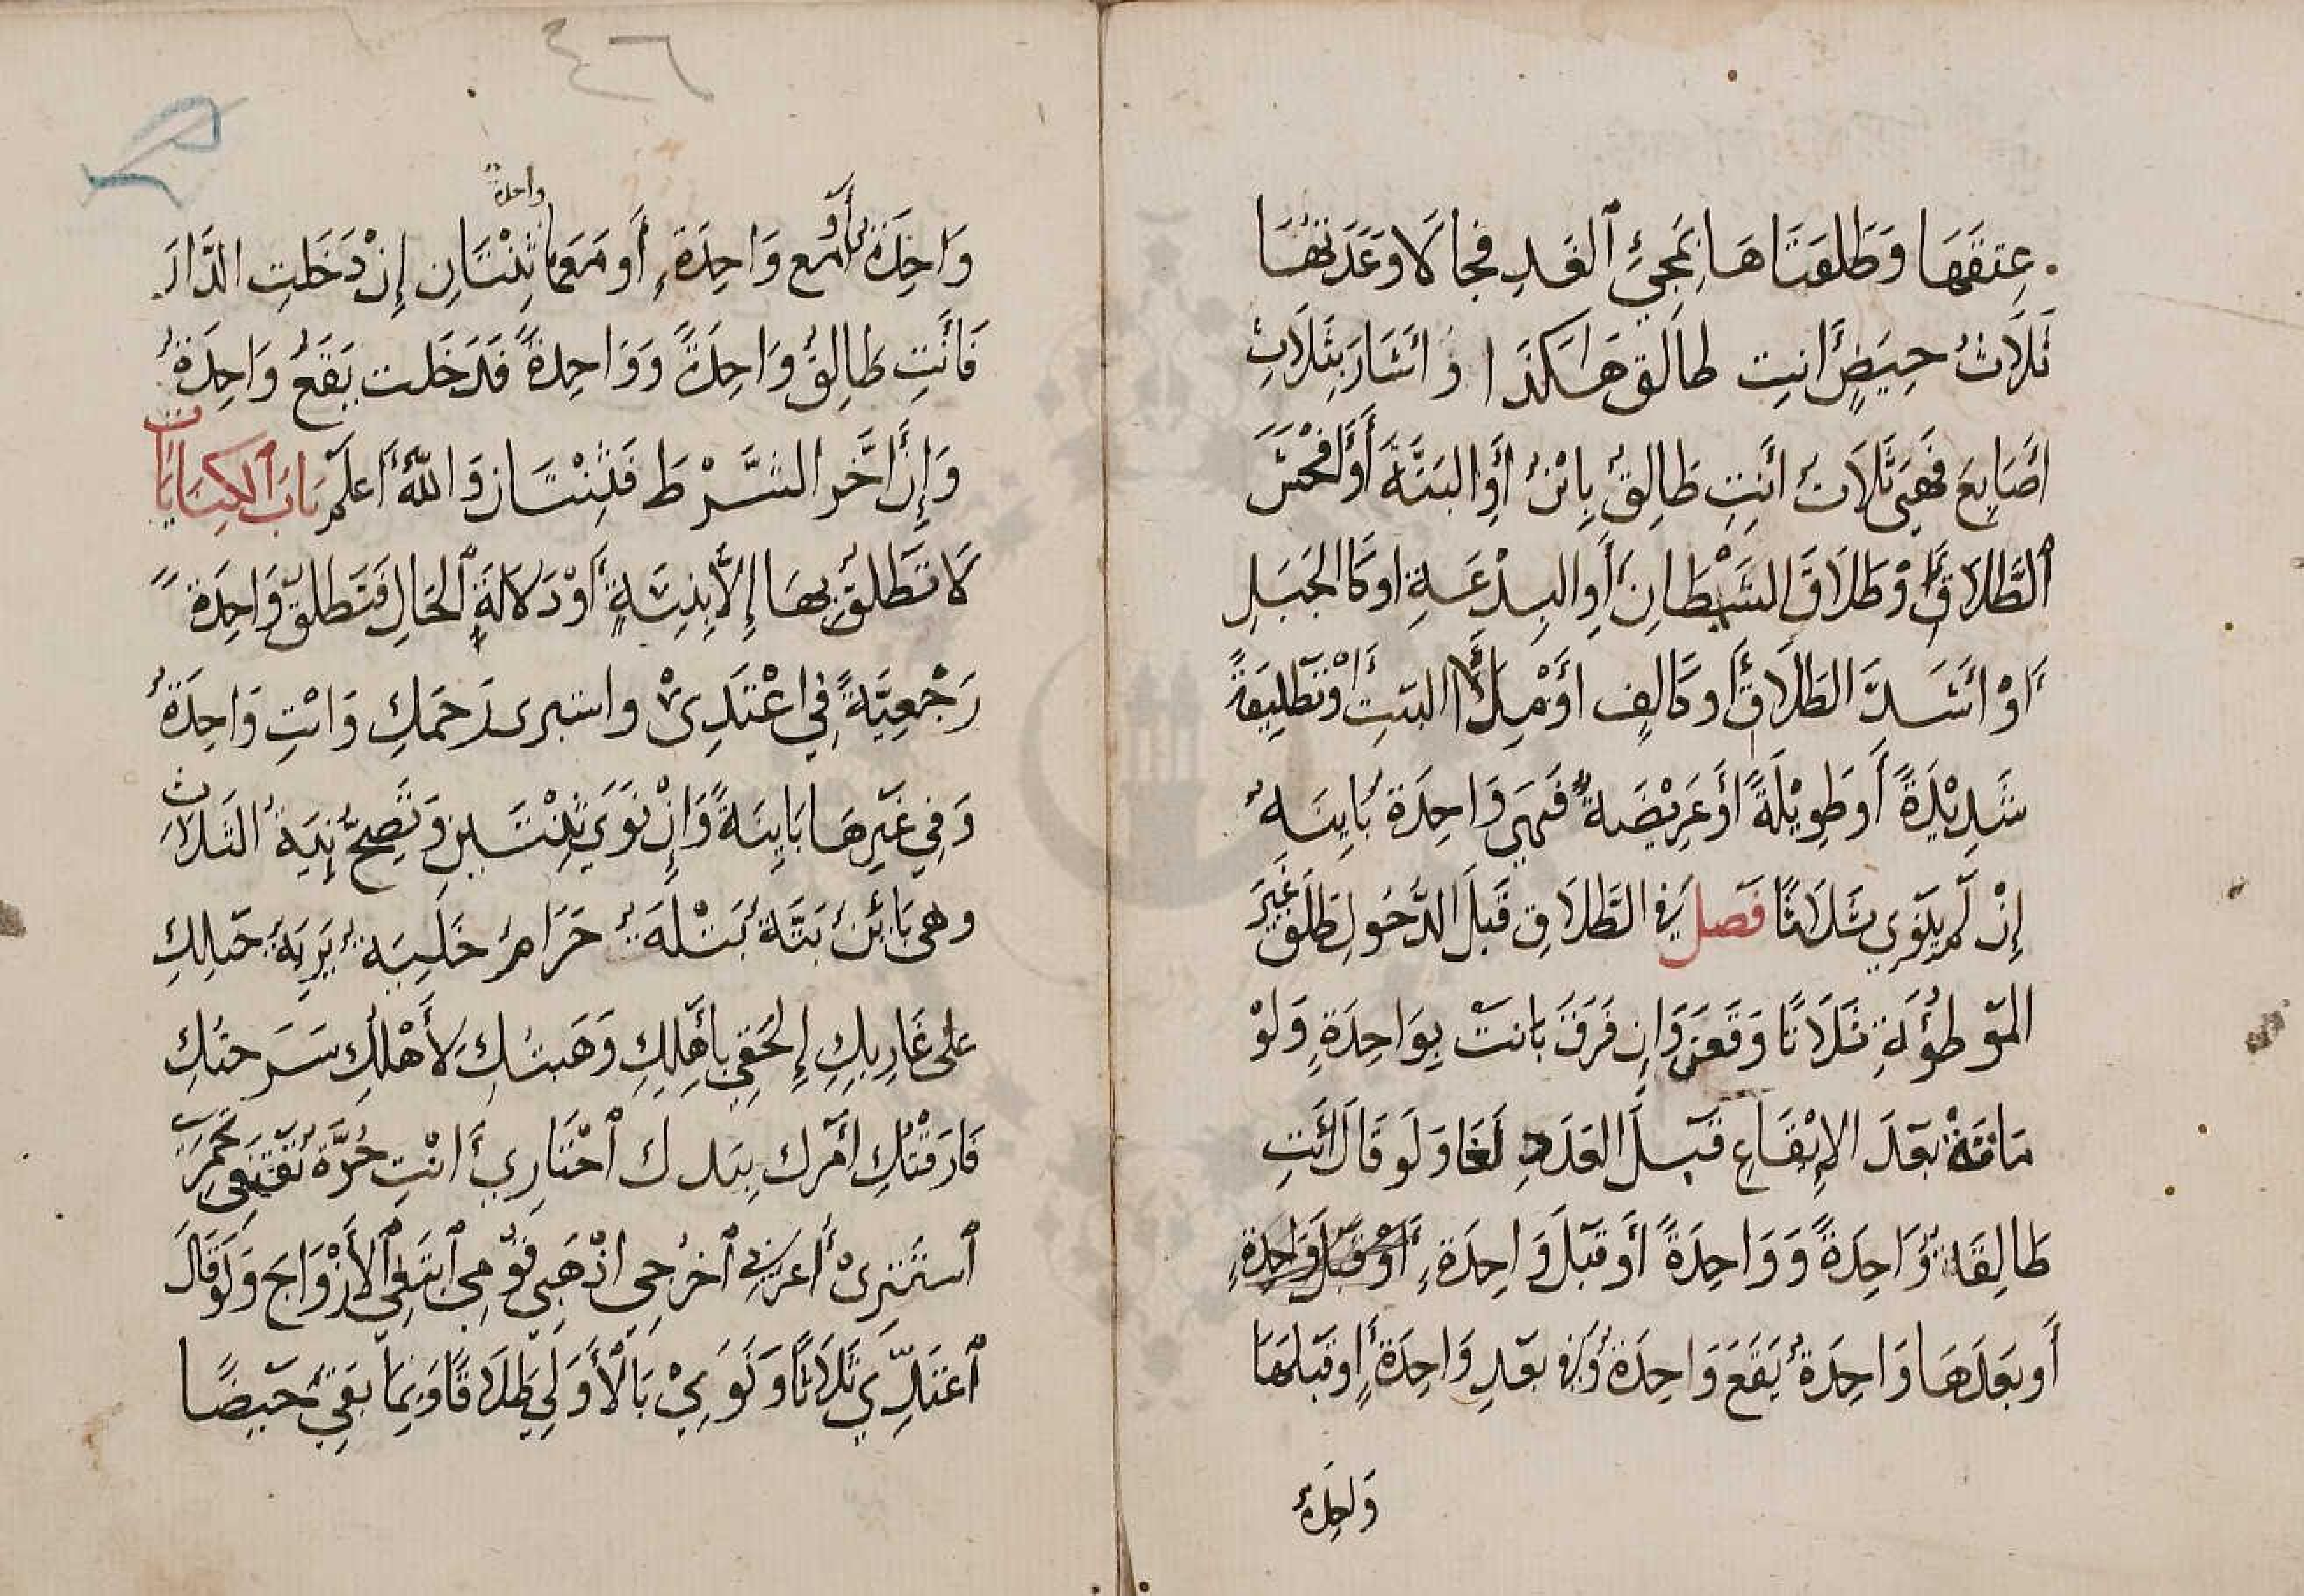 عِتقَهَا وَطَلقَتَاهَا بِمَجِيْءِ ٱلغَدِ فجَا لَا وَعَدَتُهَا
ثَلَاثُ حِيَضٍ أَنتِ طالق هَاكَذَا وَأَشَارَ بِثَلَاثِ
أَصَابِعَ فَهِيَ ثَلَاثٌ أَنتِ طَالِقٌ بِائنٌ أَوِ البَتَّةَ أَوْ أَفْحَشَ
ٱلطَّلَاقِ أَوْ طَلَاقَ الشَّيْطَانِ أَوِ البِدْعَةِ اوكَالجَبَلِ
أَوْ أَشَدَّ الطَلَاقِ أَو كَالفٍ أَوْ مِلَأَ البَيتِ أَوْ تَطْلِيقَةً
شَدِيْدَةً أَو طَوِيْلَةً أَوعَرِيْضَةً فَهِيَ وَاحِدَةٌ بَايِنَةٌ
إِنْ لَم يَنْوِي ثَلَاثًا فَصل في الطَّلَاقِ قَبلَ الدُّخُولِ طَلَّقَ غَيْرَ
المَوطُؤَةِ ثَلَاثًا وَقَعنَ وَإِن فَرَقَ بَانت بِوَاحِدَةٍ وَلَوْ
مَاتَتْ بَعدَ الإِيْقَاعِ قَبلَ العَدَدِ لَغَا وَلَو قَالَ أَنتِ
طَالِقَةٌ وَاحِدَةً وَوَاحِدَةً أَو قَبلَ وَاحِدَةٍ أَوْ قَبْلَ وَاحِدَةٍ
أَو بَعدَهَا وَاحِدَةٌ يَقَعَ وَاحِدَةٌ وَفي بَعدِ وَاحِدَةٍ أَو قَبلَهَا
وَاحِدَةٌ
٤٦
واحدة
وَاحِدَةٌ أَو مع وَاحِدَةٍ أَو مَعَهَا ثِنْتَانِ إِنْ دَخَلتِ الدَّارَ
فَأَنتِ طَالِقٌ وَاحِدَةً وَوَاحِدَةً فَدَخَلت يَقَعُ وَاحِدَةٌ
وَإِنْ أَخَّر الشَّرْطَ فَثِنْتَان وَاللّٰهُ أَعلَم بَابُ ٱلكِنَايَات
لَا تَطْلَقُ بِهَا إِلَّا بِنِيَّةٍ أَوْ دَلَالَةِ ٱلحَالِ فَتَطلقُ وَاحِدَةً
رَجْعِيَّةً فِي اعْتَدِيْ واستبرى رَحمَكِ وَانْتِ وَاحِدَةٌ
وَفِي غَيرِهَا بَايِنَةً وَإِنْ نَوَيَ ثِنْتَينِ وَتَصِحُّ نِيَةُ الثَلَاثِ
وهى بَائِنٌ بَتَّةٌ بَتْلَةٌ حَرَامٌ خَلِيَةٌ بَرِيَةٌ حَبلِكِ
على غَارِبِكِ إِلحَقِي بِأَهلِكِ وَهَبتُكِ لِأَهْلِكِ سَرَحتُكِ
فَارَقْتُكِ أَمرُك بيَدك ٱخْتَارِي أَنْتِ حُرَّةٌ تَقَنَعِى تَخَمَّرِي
ٱستَتِرِىْ أُعزبي ٱخرُجِي اذْهَبِي قُومِي ٱبتَغِي ٱلأَزْوَاجَ وَلَو قَالَ
ٱعتَدِّي ثَلَاثًا وَنَوِيْ بَالْأُولِي طَلَاقًا وَبِمَا بَقِيَ حَيضًا